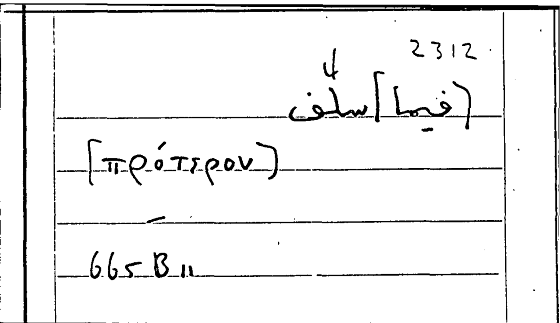 2312
(فيما) سلف
[πρότερον]
665 B 11